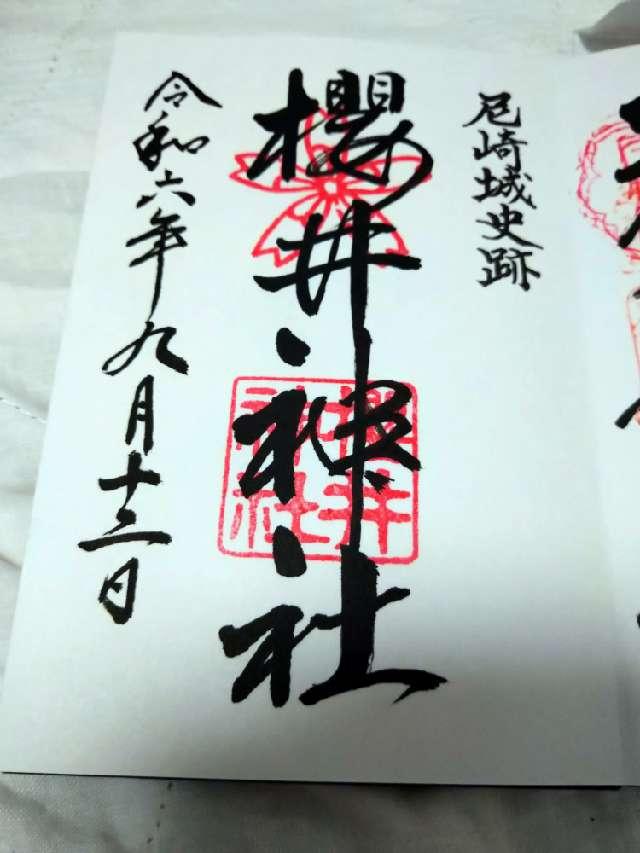 尼崎城史跡
櫻井神社
櫻井
神社
令和六年九月十三日